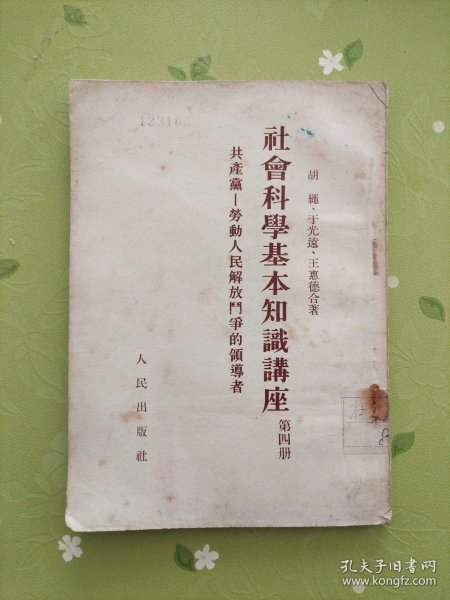 123162
胡繩、于光遠、王惠德合著
社會科學基本知識講座
第四册
共產黨—勞動人民解放鬥爭的領導者
人民出版社
8
孔夫子旧书网
www.kongfz.com